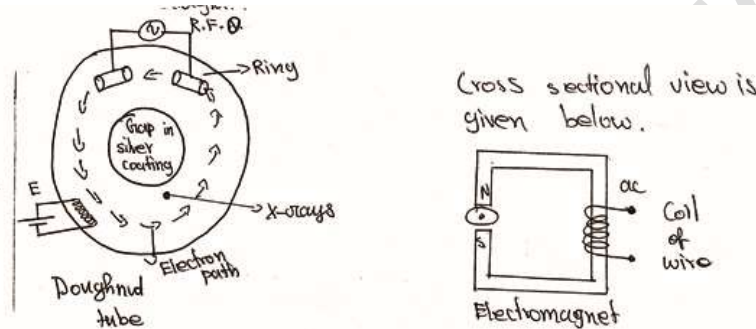 R.F.O.
Ring
Gap in
silver
coating
E
X-rays
Electron
path
Doughnud
tube
Cross sectional view is
given below.
N
S
ac
Coil
of
wire
Electromagnet